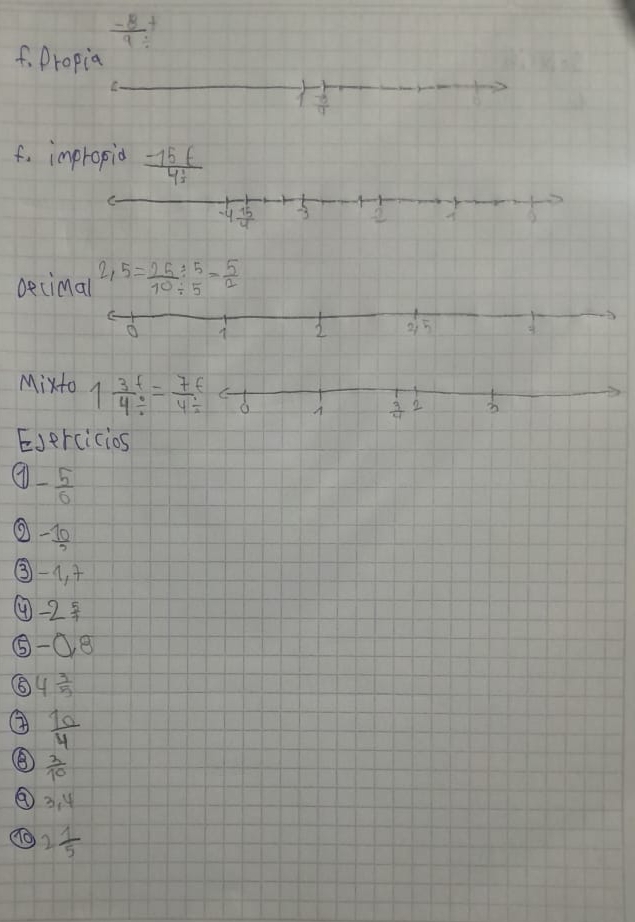 -8 t
9 ÷
f. Propia
1 8/9 0
f. impropia -15 t
4 ÷
-4 15/4 -3 -2 -1 0
Decimal 2,5 = 25 ÷ 5 / 10 ÷ 5 = 5/2
0 1 2 2,5
Mixto 1 3 t / 4 ÷ = 7 t / 4 ÷
0 1 3/4 2 3
Ejercicios
① - 5/6
② - 10
③ -1,7
④ -2
⑤ -0,8
⑥ 4 3/5
⑦ 10/4
⑧ 3/10
⑨ 3,4
⑩ 2 1/5